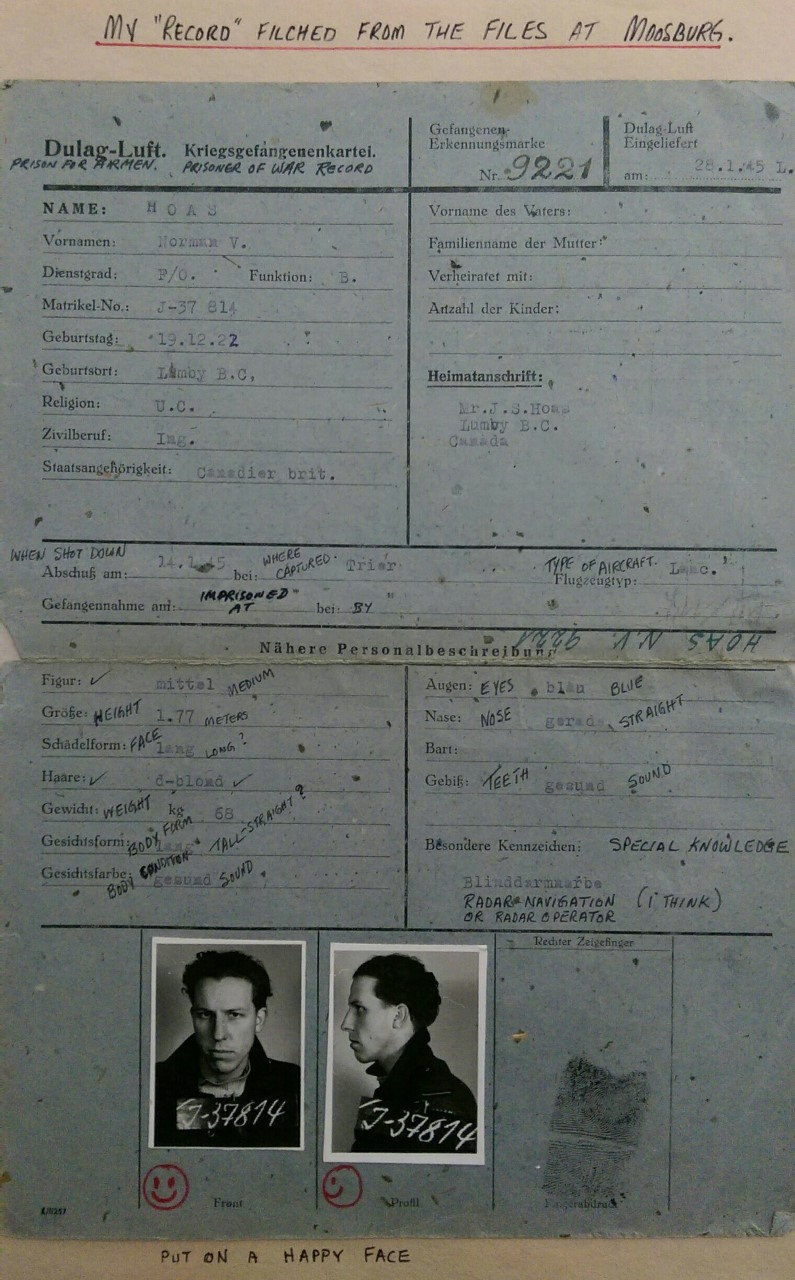 MY "RECORD" FILCHED FROM THE FILES AT MOOSBURG.
Dulag-Luft. Kriegsgefangenenkartei.
PRISON FOR AIRMEN. PRISONER OF WAR RECORD
Gefangenen-
Erkennungsmarke
Nr. 9221
Dulag-Luft
Eingeliefert
am: 28.1.45 L.
NAME: HOAS
Vornamen: Norman V.
Dienstgrad: F/O. Funktion: B.
Matrikel-No.: J-37 814
Geburtstag: 19.12.22
Geburtsort: Lumby B.C,
Religion: U.C.
Zivilberuf: Ing.
Staatsangehörigkeit: Canadier brit.
Vorname des Vaters:
Familienname der Mutter:
Verheiratet mit:
Anzahl der Kinder:
Heimatanschrift:
Mr.J.S.Hoas
Lumby B.C.
Canada
WHEN SHOT DOWN
Abschuß am: 14.1.45 bei: WHERE CAPTURED. Trier
TYPE OF AIRCRAFT.
Flugzeugtyp: Lanc.
Gefangennahe am: IMPRISONED AT " bei: BY "
HOAS N.V. 9221
Nähere Personalbeschreibung
Figur: ✓ mittel MEDIUM
Größe: HEIGHT 1.77 METERS
Schädelform: FACE lang LONG?
Haare: ✓ d-blond ✓
Gewicht: WEIGHT kg 68
Gesichtsform: BODY FORM lang TALL-STRAIGHT?
Gesichtsfarbe: BODY CONDITION gesund SOUND
Augen: EYES blau BLUE
Nase: NOSE gerade STRAIGHT
Bart:
Gebiß: TEETH gesund SOUND
Besondere Kennzeichen: SPECIAL KNOWLEDGE
Blinddarmnarbe
RADAR NAVIGATION (I THINK)
OR RADAR OPERATOR
Rechter Zeigefinger
J-37814
J-37814
Front
Profil
Fingerabdruck
PUT ON A HAPPY FACE